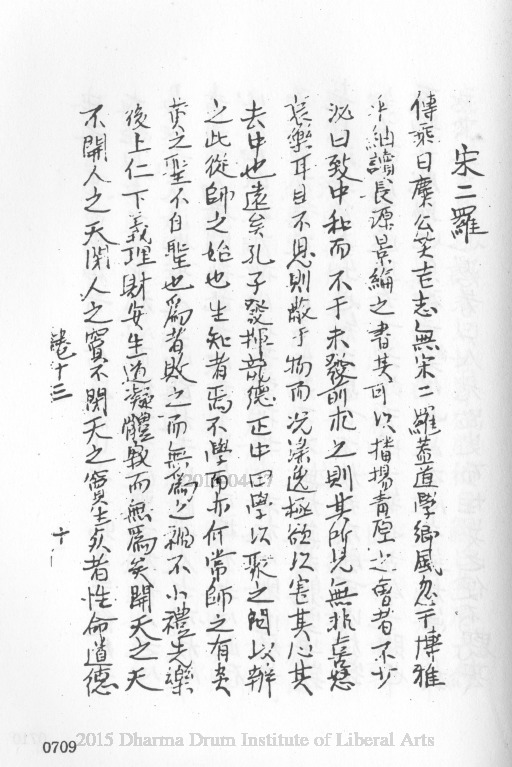 宋二羅
傳乘曰糜公笑古志無宋二羅蓋道學鄉風忽于博雅
平紬讀長源景綸之書其可以播揚青原之會者不少
泌曰致中和而不于未發前求之則其所見無非喜怒
哀樂耳目不思則蔽于物而況染逸極欲以害其心其
去中也遠矣孔子發揮龍德正中曰學以聚之問以辨
之此從師之始也生知者焉不學而亦何常師之有矣
黃之聖不自聖也為者敗之而無為之禍不小禮先樂
後上仁下義理財安生道凝體靜而無為矣開天之天
不開人之天閉人之竇不閉天之竇生矣者性命道德
卷十三
十一
0709
2015 Dharma Drum Institute of Liberal Arts